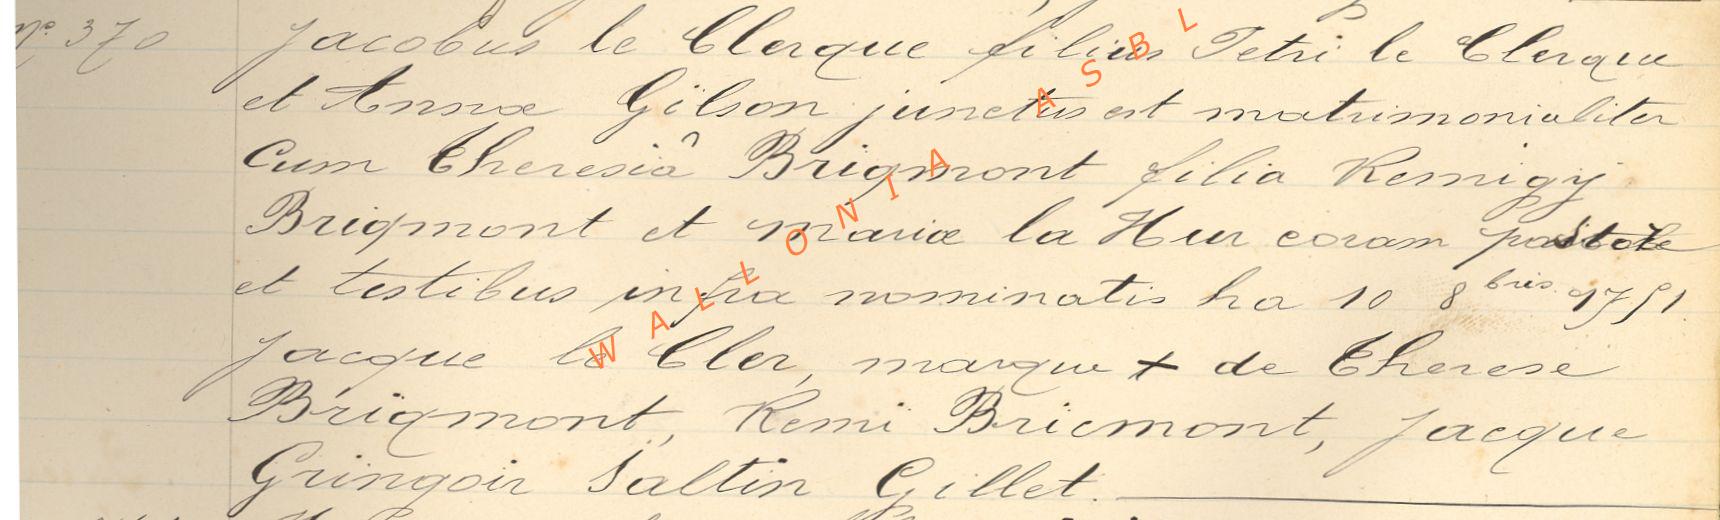 N° 370 Jacobus le Clerque filius Petri le Clerque
et Annæ Gilson junctus est matrimonialiter
Cum Theresiâ Brigmont filia Remigij
Brigmont et mariæ la Hur coram pastore
et testibus infra nominatis ha 10 8bris 1751.
Jacque le Cler, marque + de Therese
Brigmont, Remi Bricmont, Jacque
Gringoir Saltin Gillet.
WALLONIA ASBL